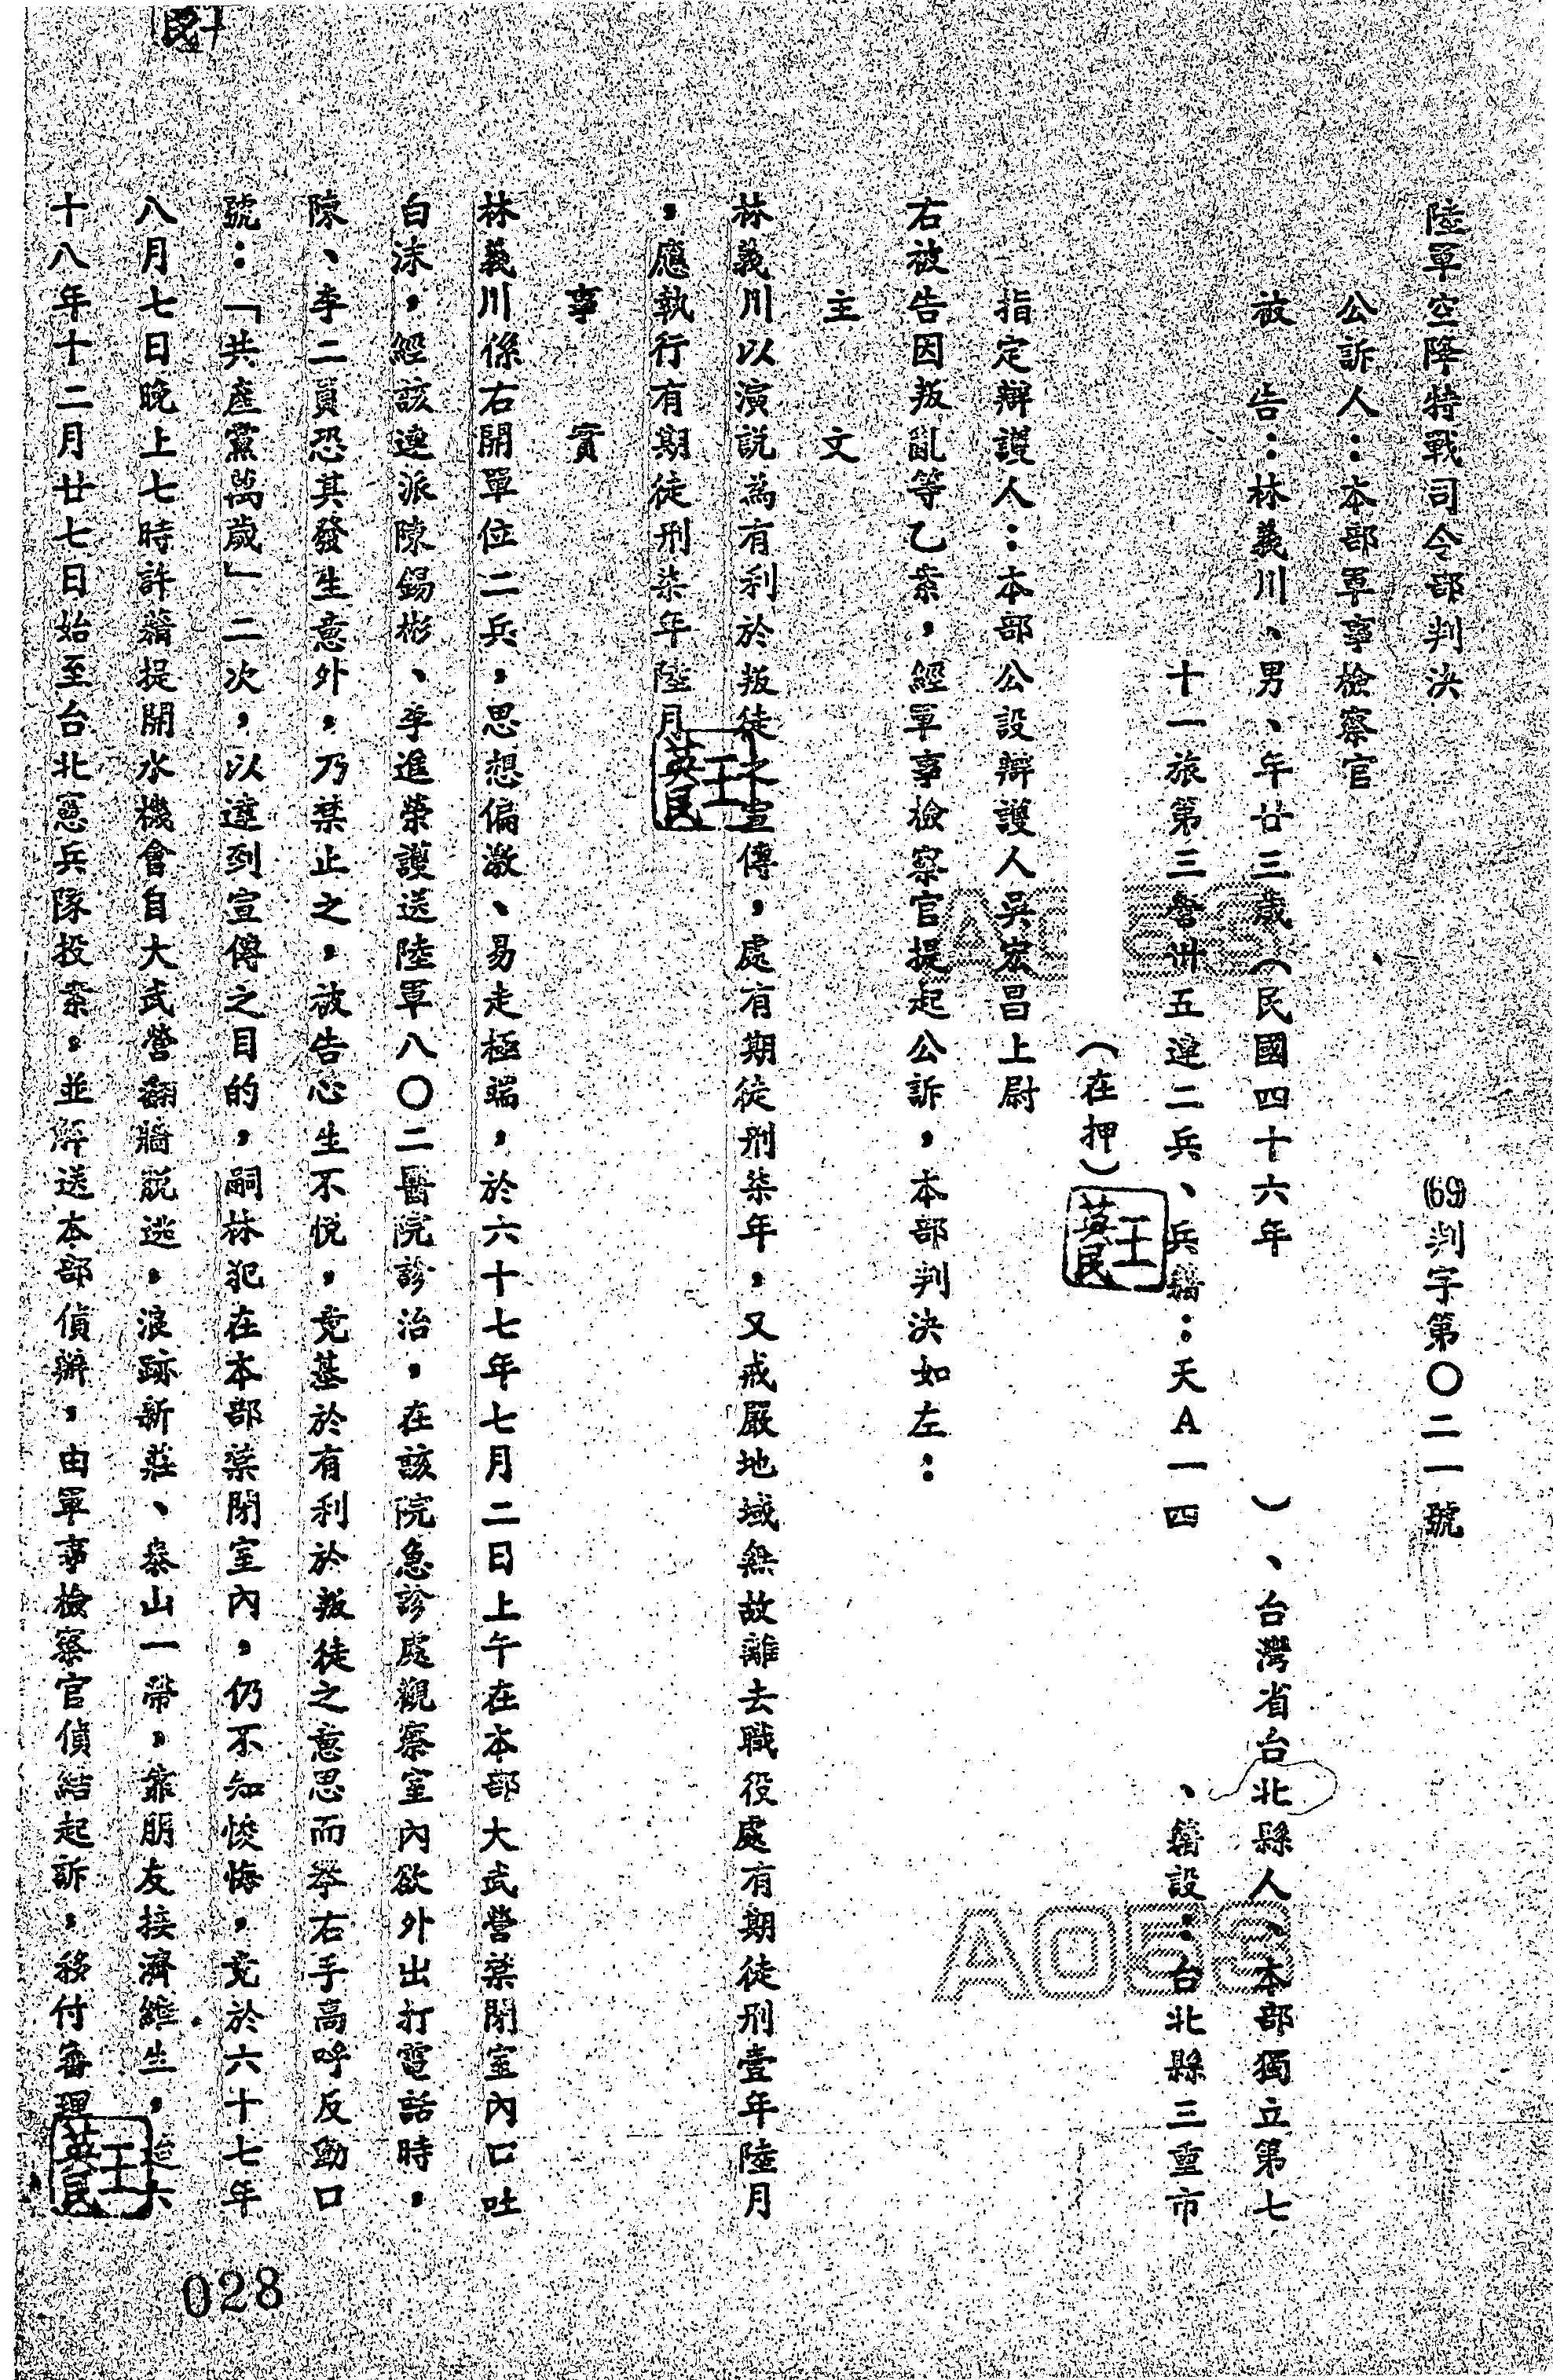 陸軍空降特戰司令部判決 (69)判字第〇二一號
公訴人：本部軍事檢察官
被告：林義川、男、年廿三歲（民國四十六年 ）、台灣省台北縣人、本部獨立第七
十一旅第三營卅五連二兵、兵籍：天A一四 、籍設：台北縣三重市
（在押）
指定辯護人：本部公設辯護人吳宏昌上尉
右被告因叛亂等乙案，經軍事檢察官提起公訴，本部判決如左：
主文
林義川以演說為有利於叛徒之宣傳，處有期徒刑柒年，又戒嚴地域無故離去職役處有期徒刑壹年陸月
，應執行有期徒刑柒年陸月
事實
林義川係右開單位二兵，思想偏激、易走極端，於六十七年七月二日上午在本部大武營禁閉室內口吐
白沫，經該連派陳錫彬、李進榮護送陸軍八〇二醫院診治，在該院急診處觀察室內欲外出打電話時，
陳、李二員恐其發生意外，乃禁止之，被告心生不悅，竟基於有利於叛徒之意思而舉右手高呼反動口
號：「共產黨萬歲」二次，以達到宣傳之目的，嗣林犯在本部禁閉室內，仍不知悛悔，竟於六十七年
八月七日晚上七時許藉提開水機會自大武營翻牆脫逃，浪跡新莊、泰山一帶，靠朋友接濟維生，迨六
十八年十二月廿七日始至台北憲兵隊投案，並解送本部偵辦，由軍事檢察官偵結起訴，移付審理
王英民
王英民
王英民
A053
A053
028